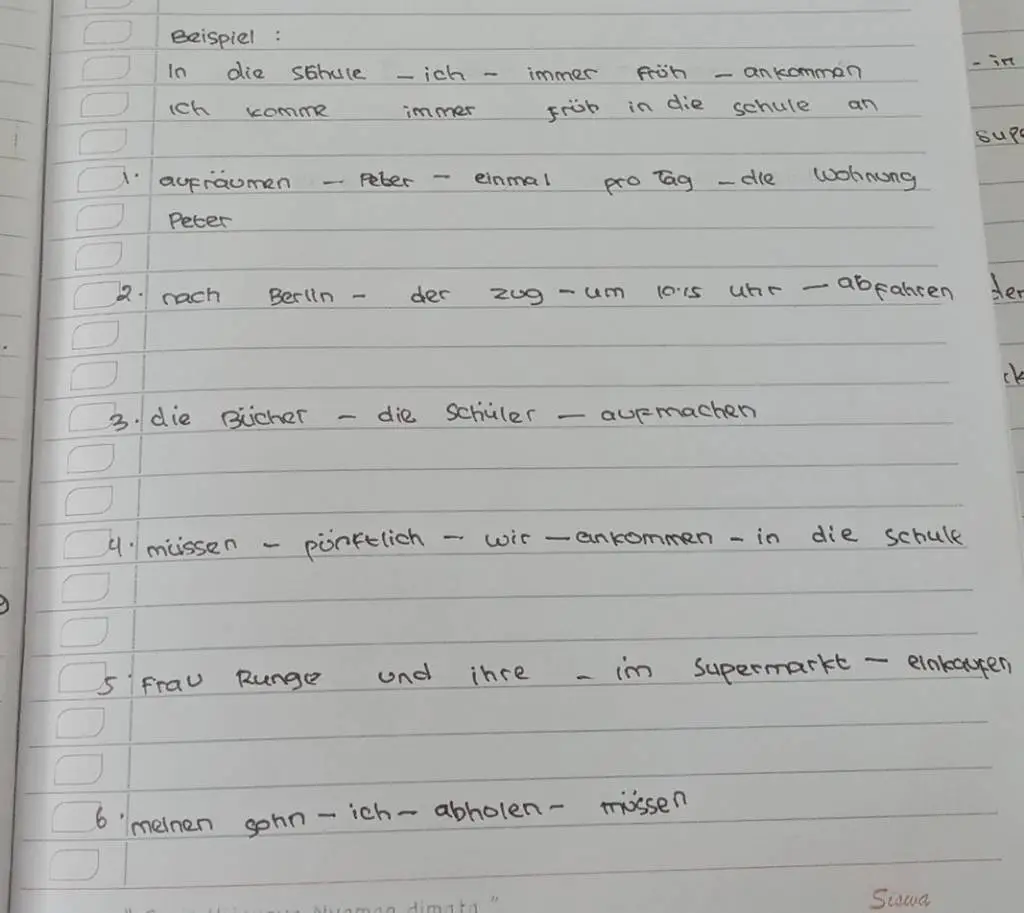 Beispiel :
In die Schule – ich – immer früh – ankommen
Ich komme immer früh in die schule an
- in
supe
1. aufräumen – Peter – einmal pro Tag – die Wohnung
Peter
2. nach Berlin – der zug – um 10.15 uhr – abfahren
der
ck
3. die Bücher – die Schüler – aufmachen
4. müssen – pünktlich – wir – ankommen – in die schule
5. Frau Runge und ihre – im Supermarkt – einkaufen
6. meinen sohn – ich – abholen – müssen
Siswa